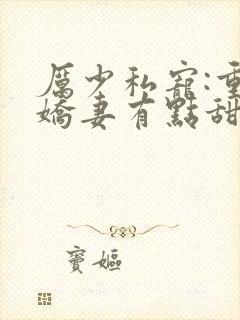 厲少私寵:重
嬌妻有點甜
寶嫗